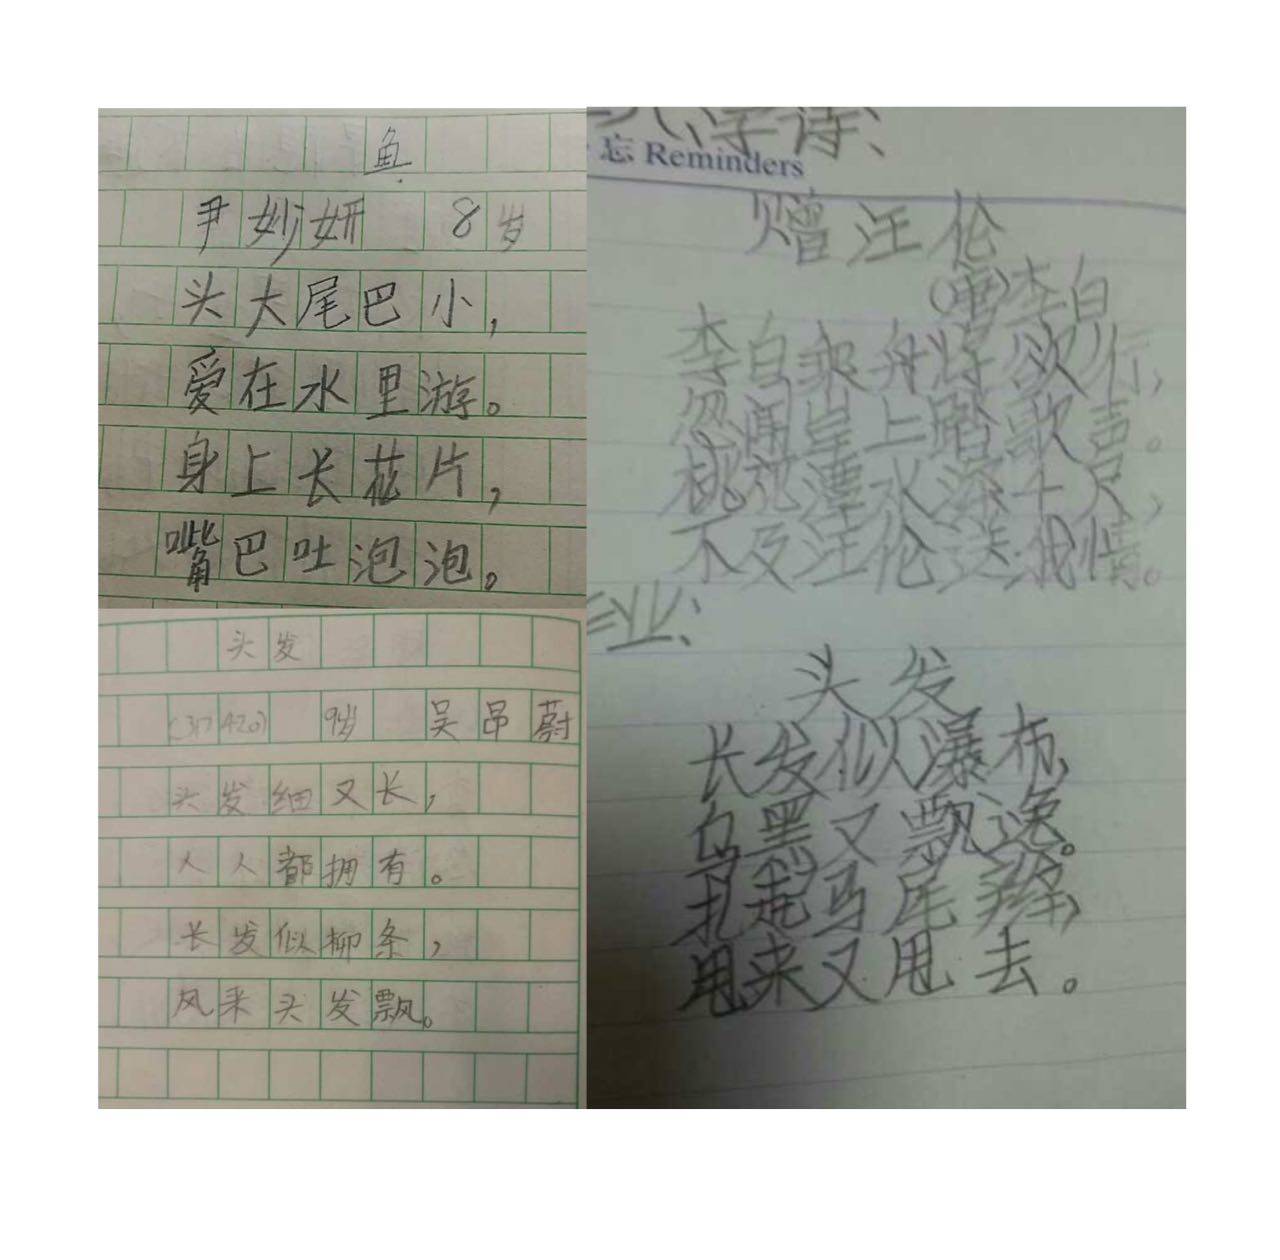 鱼
尹妙妍 8岁
头大尾巴小，
爱在水里游。
身上长花片，
嘴巴吐泡泡。
头发
(317420) 9岁 吴昂蔚
头发细又长，
人人都拥有。
长发似柳条，
风来头发飘。
学诗：
忘 Reminders
赠汪伦
(唐)李白
李白乘舟将欲行，
忽闻岸上踏歌声。
桃花潭水深十尺，
不及汪伦送我情。
三业：
头发
长发似瀑布，
乌黑又飘逸。
扎起马尾辫，
甩来又甩去。